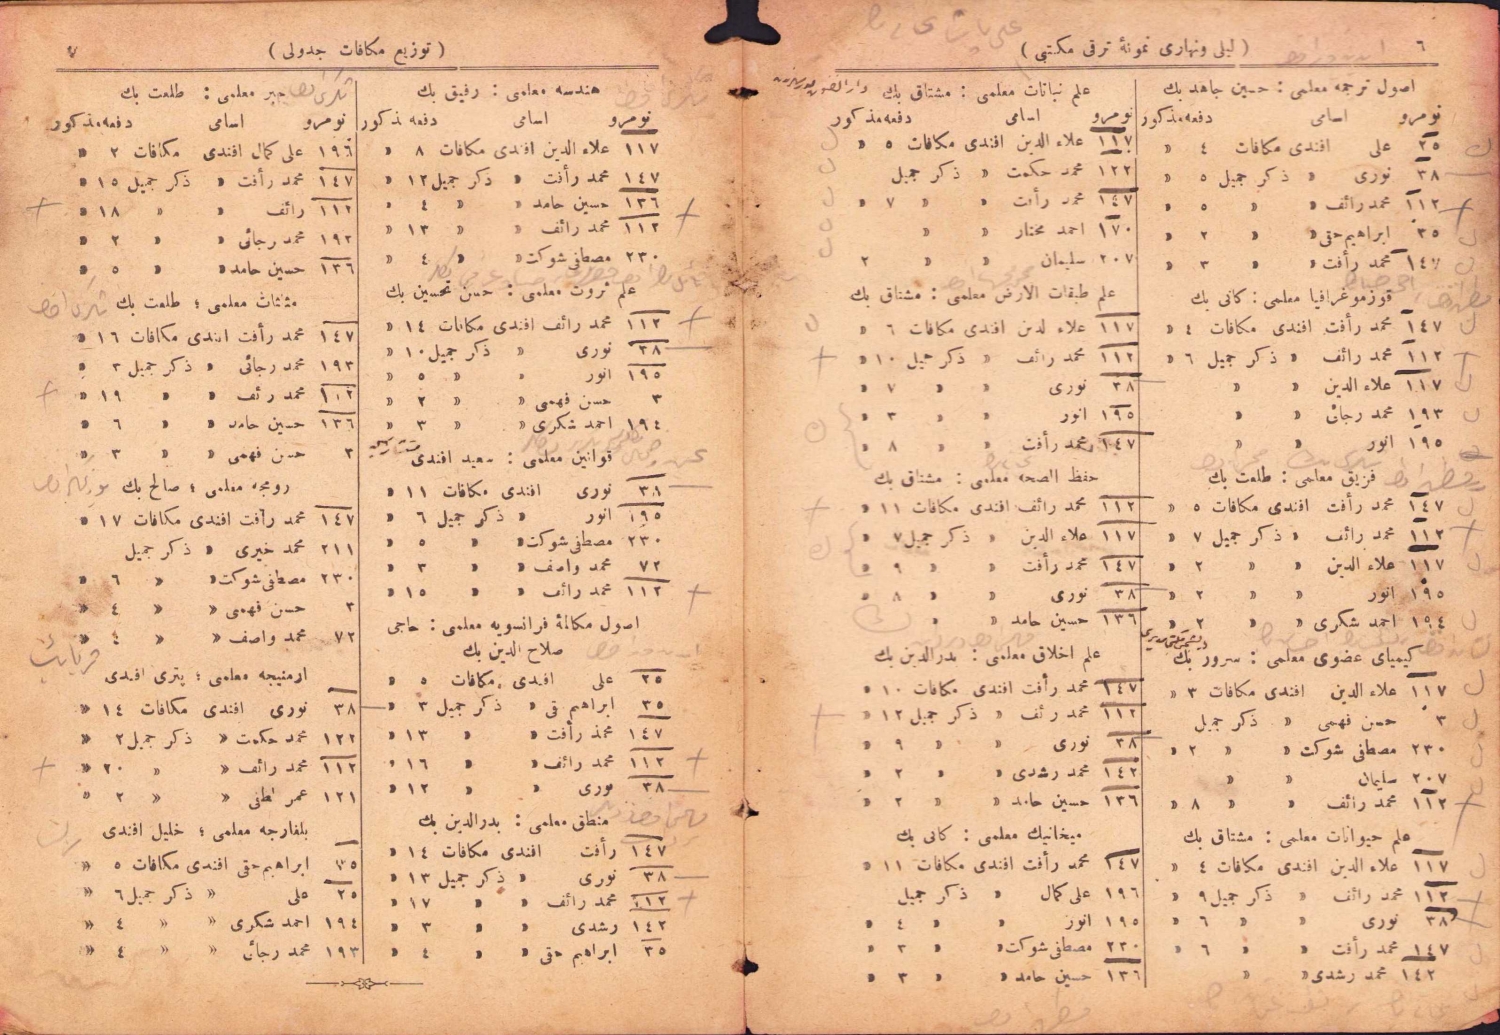 ٦ ( ليلى ونهارى نمونۀ ترقى مكتبى )
اصول ترجمه معلمى : حسين جاهد بك
نومرو اسامى دفعه مذكور
٢٥ على افندى مكافات ٤ »
٣٨ نورى » ذكر جميل ٥ »
١١٢ محمد رائف » » ٥ »
٣٥ ابراهيم حقى » » ٢ »
١٤٧ محمد رأفت » » ٣ »
قوزموغرافيا معلمى : كانى بك
١٤٧ محمد رأفت افندى مكافات ٤ »
١١٢ محمد رائف » ذكر جميل ٦ »
١١٧ علاء الدين » »
١٩٣ محمد رجائى » »
١٩٥ انور » »
فزيق معلمى : طلعت بك
١٤٧ محمد رأفت افندى مكافات ٥ »
١١٢ محمد رائف » ذكر جميل ٧ »
١١٧ علاء الدين » » ٢ »
١٩٥ انور » » ٢ »
١٩٤ احمد شكرى » » ٢ »
كيمياى عضوى معلمى : سرور بك
١١٧ علاء الدين افندى مكافات ٣ »
٣ حسن فهمى » ذكر جميل
٢٣٠ مصطفى شوكت » » ٢ »
٢٠٧ سليمان » »
١١٢ محمد رائف » » ٨ »
علم حيوانات معلمى : مشتاق بك
١١٧ علاء الدين افندى مكافات ٤ »
١١٢ محمد رائف » ذكر جميل ٩ »
٣٨ نورى » » ٦ »
١٤٧ محمد رأفت » » ٦ »
١٤٢ محمد رشدى » »
علم نباتات معلمى : مشتاق بك
نومرو اسامى دفعه مذكور
١١٧ علاء الدين افندى مكافات ٥ »
١٢٢ محمد حكمت » ذكر جميل
١٤٧ محمد رأفت » » ٧ »
١٧٠ احمد مختار » »
٢٠٧ سليمان » » ٢
علم طبقات الارض معلمى : مشتاق بك
١١٧ علاء لدين افندى مكافات ٦ »
١١٢ محمد رائف » ذكر جميل ١٠ »
٣٨ نورى » » ٧ »
١٩٥ انور » » ٣ »
١٤٧ محمد رأفت » » ٨ »
حفظ الصحه معلمى : مشتاق بك
١١٢ محمد رائف افندى مكافات ١١ »
١١٧ علاء الدين » ذكر جميل ٧ »
١٤٧ محمد رأفت » » ٩ »
٣٨ نورى » » ٨ »
١٣٦ حسين حامد » »
علم اخلاق معلمى : بدرالدين بك
١٤٧ محمد رأفت افندى مكافات ١٠ »
١١٢ محمد رائف » ذكر جميل ١٢ »
٣٨ نورى » » ٩ »
١٤٢ محمد رشدى » » ٢ »
١٣٦ حسين حامد » » ٢ »
ميخانيك معلمى : كانى بك
١٤٧ محمد رأفت افندى مكافات ١١ »
١٩٦ على كمال » ذكر جميل
١٩٥ انور » » ٤ »
٢٣٠ مصطفى شوكت » » ٣ »
١٣٦ حسين حامد » » ٣ »
( توزيع مكافات جدولى ) ٧
هندسه معلمى : رفيق بك
نومرو اسامى دفعه مذكور
١١٧ علاء الدين افندى مكافات ٨ »
١٤٧ محمد رأفت » ذكر جميل ١٢ »
١٣٦ حسين حامد » » ٤ »
١١٢ محمد رائف » » ١٣ »
٢٣٠ مصطفى شوكت » » ٤ »
علم ثروت معلمى : حسن تحسين بك
١١٢ محمد رائف افندى مكافات ١٤ »
٣٨ نورى » ذكر جميل ١٠ »
١٩٥ انور » » ٥ »
٣ حسن فهمى » » ٢ »
١٩٤ احمد شكرى » » ٣ »
قوانين معلمى : سعيد افندى
٣٨ نورى افندى مكافات ١١ »
١٩٥ انور » ذكر جميل ٦ »
٢٣٠ مصطفى شوكت » » ٥ »
٧٢ محمد واصف » » ٣ »
١١٢ محمد رائف » » ١٥ »
اصول مكالمۀ فرانسويه معلمى : حاجى
صلاح الدين بك
٢٥ على افندى مكافات ٥ »
٣٥ ابراهيم قى » ذكر جميل ٣ »
١٤٧ محمد رأفت » » ١٣ »
١١٢ محمد رائف » » ١٦ »
٣٨ نورى » » ١٢ »
منطق معلمى : بدرالدين بك
١٤٧ رأفت افندى مكافات ١٤ »
٣٨ نورى » ذكر جميل ١٣ »
١١٢ محمد رائف » » ١٧ »
١٤٢ رشدى » » ٣ »
٣٥ ابراهيم حقى » » ٤ »
جبر معلمى : طلعت بك
نومرو اسامى دفعه مذكور
١٩٦ على كمال افندى مكافات ٢ »
١٤٧ محمد رأفت » ذكر جميل ١٥ »
١١٢ رائف » » ١٨ »
١٩٢ محمد رجائى » » ٢ »
١٣٦ حسين حامد » » ٥ »
مثلثات معلمى : طلعت بك
١٤٧ محمد رأفت افندى مكافات ١٦ »
١٩٣ محمد رجائى » ذكر جميل ٣ »
١١٢ محمد رائف » » ١٩ »
١٣٦ حسين حامد » » ٦ »
٣ حسن فهمى » » ٣ »
رومجه معلمى : صالح بك
١٤٧ محمد رأفت افندى مكافات ١٧ »
٢١١ محمد خيرى » ذكر جميل
٢٣٠ مصطفى شوكت » » ٦ »
٣ حسن فهمى » » ٤ »
٧٢ محمد واصف » » ٤ »
ارمنيجه معلمى : پترى افندى
٣٨ نورى افندى مكافات ١٤ »
١٢٢ محمد حكمت » ذكر جميل ٢ »
١١٢ محمد رائف » » ٢٠ »
١٢١ عمر لطفى » » ٢ »
بلغارجه معلمى : خليل افندى
٣٥ ابراهيم حقى افندى مكافات ٥ »
٢٥ على » ذكر جميل ٦ »
١٩٤ احمد شكرى » » ٤ »
١٩٣ محمد رجائى » » ٤ »